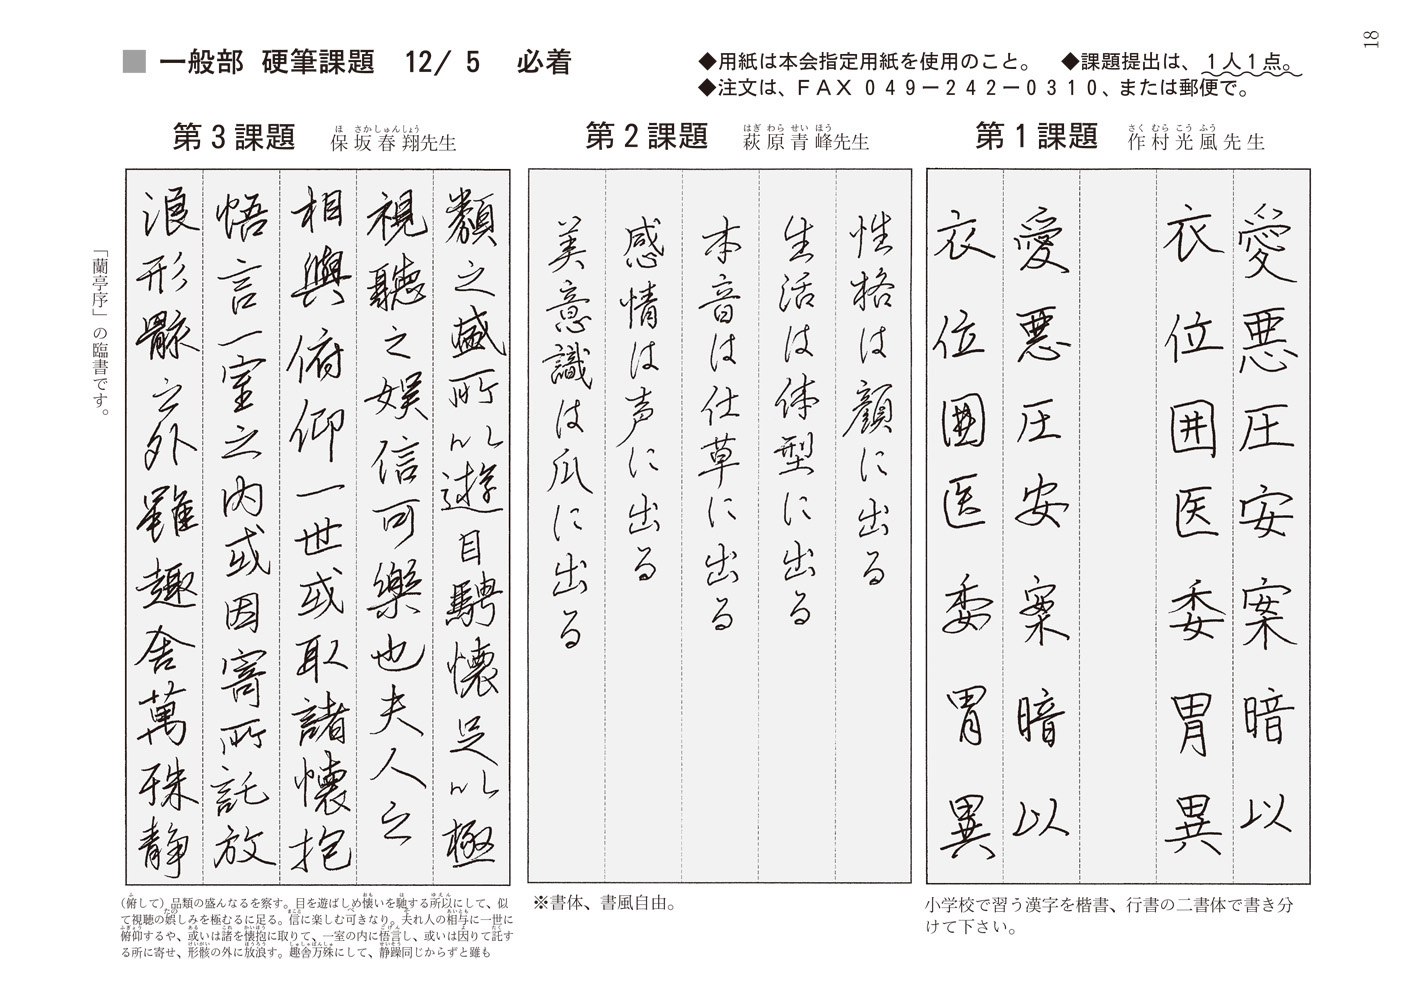 18
■ 一般部 硬筆課題 12/ 5 必着
◆用紙は本会指定用紙を使用のこと。 ◆課題提出は、1人1点。
◆注文は、FAX 049－242－0310、または郵便で。
第1課題 作村光風先生
さく むら こう ふう
愛悪圧安案暗以
衣位囲医委胃異
愛悪圧安案暗以
衣位囲医委胃異
小学校で習う漢字を楷書、行書の二書体で書き分
けて下さい。
第2課題 萩原青峰先生
はぎ わら せい ほう
性格は顔に出る
生活は体型に出る
本音は仕草に出る
感情は声に出る
美意識は爪に出る
※書体、書風自由。
第3課題 保坂春翔先生
ほ さかしゅんしょう
類之盛所以遊目騁懐足以極
視聽之娯信可樂也夫人之
相與俯仰一世或取諸懐抱
悟言一室之内或因寄所託放
浪形骸之外雖趣舎萬殊静
「蘭亭序」の臨書です。
（俯して）品類の盛んなるを察す。目を遊ばしめ懐いを馳する所以にして、似
て視聴の娯しみを極むるに足る。信に楽しむ可きなり。夫れ人の相与に一世に
俯仰するや、或いは諸を懐抱に取りて、一室の内に悟言し、或いは因りて託す
る所に寄せ、形骸の外に放浪す。趣舎万殊にして、静躁同じからずと雖も